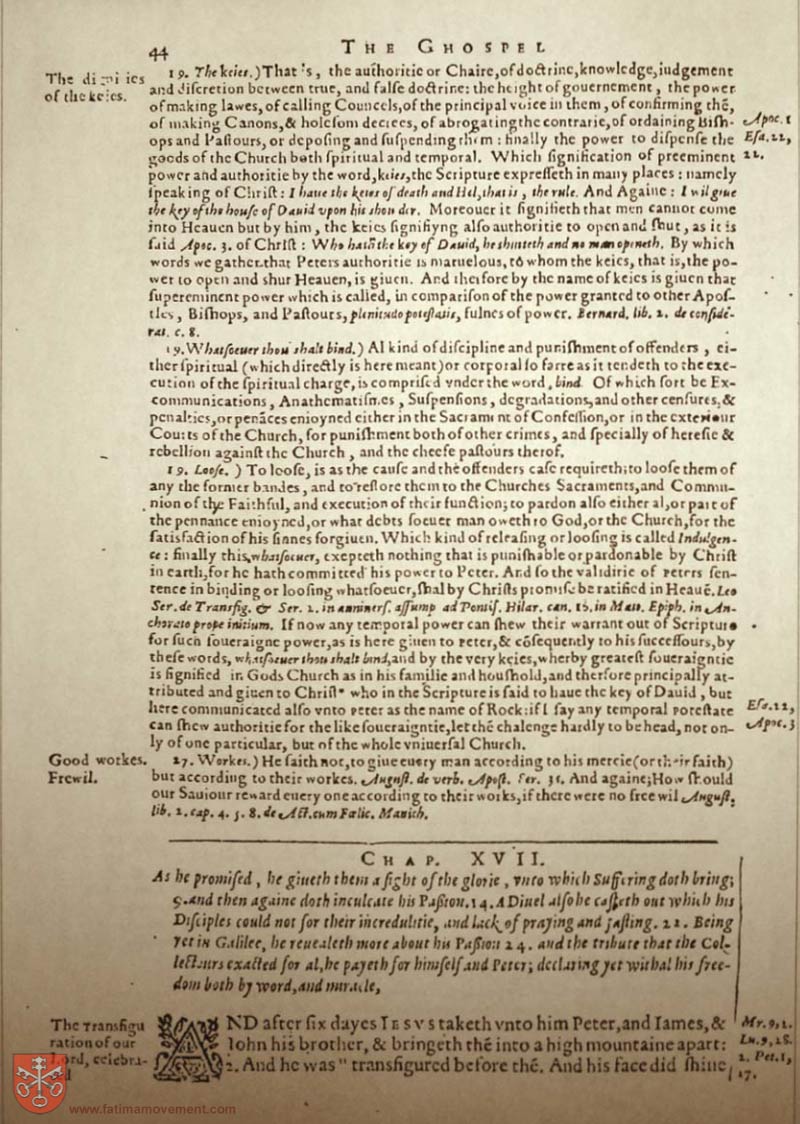 44
THE GHOSPEL
The dignities
of the keies.
19. The keies.) That's, the authoritie or Chaire, of doctrine, knowledge, iudgement
and discretion between true, and false doctrine: the height of gouernement, the power
of making lawes, of calling Councels, of the principal voice in them, of confirming thē,
of making Canons, & holesom decrees, of abrogating the contrarie, of ordaining Bish-
ops and Pastours, or deposing and suspending them: finally the power to dispense the
goods of the Church both spiritual and temporal. Which signification of preeminent
power and authoritie by the word, keies, the Scripture expresseth in many places: namely
speaking of Christ: I haue the keies of death and Hel, that is, the rule. And Againe: I wil giue
the key of the house of Dauid vpon his shoulder. Moreouer it signifieth that men cannot come
into Heauen but by him, the keies signifiyng also authoritie to open and shut, as it is
said Apoc. 3. of Christ: Who hath the key of Dauid, he shutteth and no man openeth. By which
words we gather that Peters authoritie is maruelous, to whom the keies, that is, the po-
wer to open and shut Heauen, is giuen. And therfore by the name of keies is giuen that
supereminent power which is called, in comparison of the power granted to other Apos-
tles, Bishops, and Pastours, plenitudo potestatis, fulnes of power. Bernard. lib. 2. de conside-
rat. c. 8.
Apoc. 1
Esa. 22,
22.
19. Whatsoeuer thou shalt bind.) Al kind of discipline and punishment of offenders, ei-
ther spiritual (which directly is here meant) or corporal so farre as it tendeth to the exe-
cution of the spiritual charge, is comprised vnder the word, bind. Of which sort be Ex-
communications, Anathematismes, Suspensions, degradations, and other censures, &
penalties, or penāces enioyned either in the Sacrament of Confession, or in the exteriour
Courts of the Church, for punishment both of other crimes, and specially of heresie &
rebellion against the Church, and the cheefe pastours therof.
19. Loose.) To loose, is as the cause and the offenders case requireth; to loose them of
any the former bandes, and to restore them to the Churches Sacraments, and Commu-
nion of the Faithful, and execution of their function; to pardon also either al, or part of
the pennance enioyned, or what debts soeuer man oweth to God, or the Church, for the
satisfaction of his sinnes forgiuen. Which kind of releasing or loosing is called Indulgen-
ce: finally this, whatsoeuer, excepteth nothing that is punishable or pardonable by Christ
in earth, for he hath committed his power to Peter. And so the validitie of Peters sen-
tence in binding or loosing whatsoeuer, shal by Christs promise be ratified in Heauē. Leo
Ser. de Transfig. & Ser. 2. in anniuers. assump ad Pontif. Hilar. can. 16. in Matt. Epiph. in An-
chorato prope initium. If now any temporal power can shew their warrant out of Scripture
for such soueraigne power, as is here giuen to Peter, & cōsequently to his successours, by
these words, whatsoeuer thou shalt bind, and by the very keies, wherby greatest soueraigntie
is signified in Gods Church as in his familie and houshold, and therfore principally at-
tributed and giuen to Christ who in the Scripture is said to haue the key of Dauid, but
here communicated also vnto Peter as the name of Rock: if I say any temporal potestate
can shew authoritie for the like soueraigntie, let thē chalenge hardly to be head, not on-
ly of one particular, but of the whole vniuersal Church.
Esa. 22,
Apoc. 3
Good workes.
Frewil.
27. Workes.) He saith not, to giue euery man according to his mercie (or their faith)
but according to their workes. August. de verb. Apost. Ser. 35. And againe; How should
our Sauiour reward euery one according to their works, if there were no free wil August.
lib. 2. cap. 4. 5. 8. de Act. cum Fœlic. Manich.
CHAP. XVII.
As he promised, he giueth them a sight of the glorie, vnto which Suffering doth bring;
9. and then againe doth inculcate his Passion. 14. A Diuel also he casteth out which his
Disciples could not for their incredulitie, and lack of praying and fasting. 22. Being
yet in Galilee, he reuealeth more about his Passion 24. and the tribute that the Col-
lectours exacted for al, he payeth for himself and Peter; declaring yet withal his free-
dom both by word, and miracle,
The Transfigu
ration of our
Lord, celebra-
AND after six dayes IESVS taketh vnto him Peter, and Iames, &
Iohn his brother, & bringeth thē into a high mountaine apart:
2. And he was" transfigured before thē. And his face did shine
Mr. 9, 2.
Lu. 9, 28.
2. Pet. 1,
17.
www.fatimamovement.com